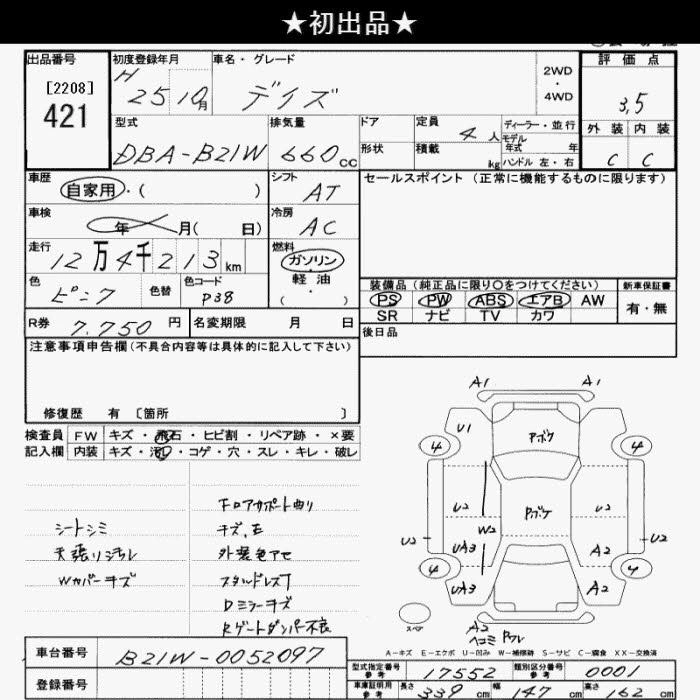 ★初出品★
出品番号
[2208]
421
初度登録年月
H 25 10月
車名・グレード
デイズ
2WD
・
4WD
評価点
3,5
外装 内装
C C
型式
DBA-B21W
排気量
660cc
ドア
形状
定員
4人
積載
kg
ディーラー・並行
モデル
年式 年
ハンドル 左・右
車歴
自家用・( )
シフト
AT
セールスポイント (正常に機能するものに限ります)
車検
年 月( 日)
冷房
AC
走行
12万4千213km
燃料
ガソリン
・
軽油
・
( )
色
ピンク
色替
色コード
P38
装備品 (純正品に限り○をつけてください)
PS PW ABS エアB AW
SR ナビ TV カワ
新車保証書
有・無
R券
7,750円
名変期限 月 日
後日品
注意事項申告欄(不具合内容等は具体的に記入して下さい)
修復歴 有 〔箇所 〕
検査員
記入欄
FW キズ・飛石・ヒビ割・リペア跡・×要
内装 キズ・汚れ・コゲ・穴・スレ・キレ・破レ
シートシミ
天張リ汚レ
Wカバーキズ
下ロアサポート曲リ
キズ、E
外装色アセ
スタッドレスT
Dミラーキズ
Rゲートダンパー不良
A1 A1
U1
Pボケ
4 4
Pボケ
U2 U2
U2 W2 U2
UA3 A2
4 4
UA3 A2
スペア
A2
ヘコミ Pワレ
A-キズ E-エクボ U-凹み W-補修跡 S-サビ C-腐食 XX-交換済
車台番号
B21W-0052097
登録番号
型式指定番号
参考
17552
類別区分番号
参考
0001
車庫証明用
参考
長さ 339cm 幅 147cm 高さ 162cm